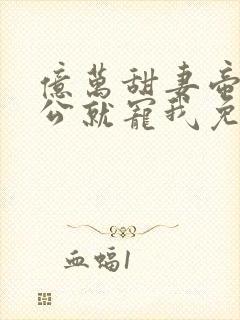 億萬甜妻帝
公就寵我免
血蝠1